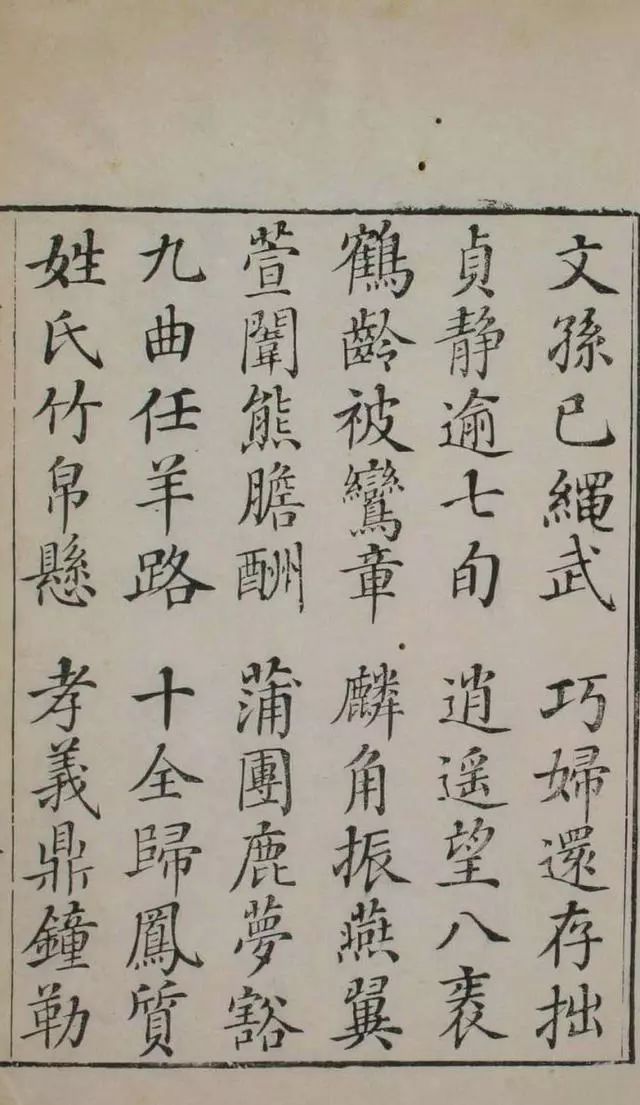 文孫已繩武 巧婦還存拙
貞静逾七旬 逍遥望八袠
鶴齡被鸞章 麟角振燕翼
萱闈熊膽酬 蒲團鹿夢豁
九曲任羊路 十全歸鳳質
姓氏竹帛懸 孝義鼎鐘勒